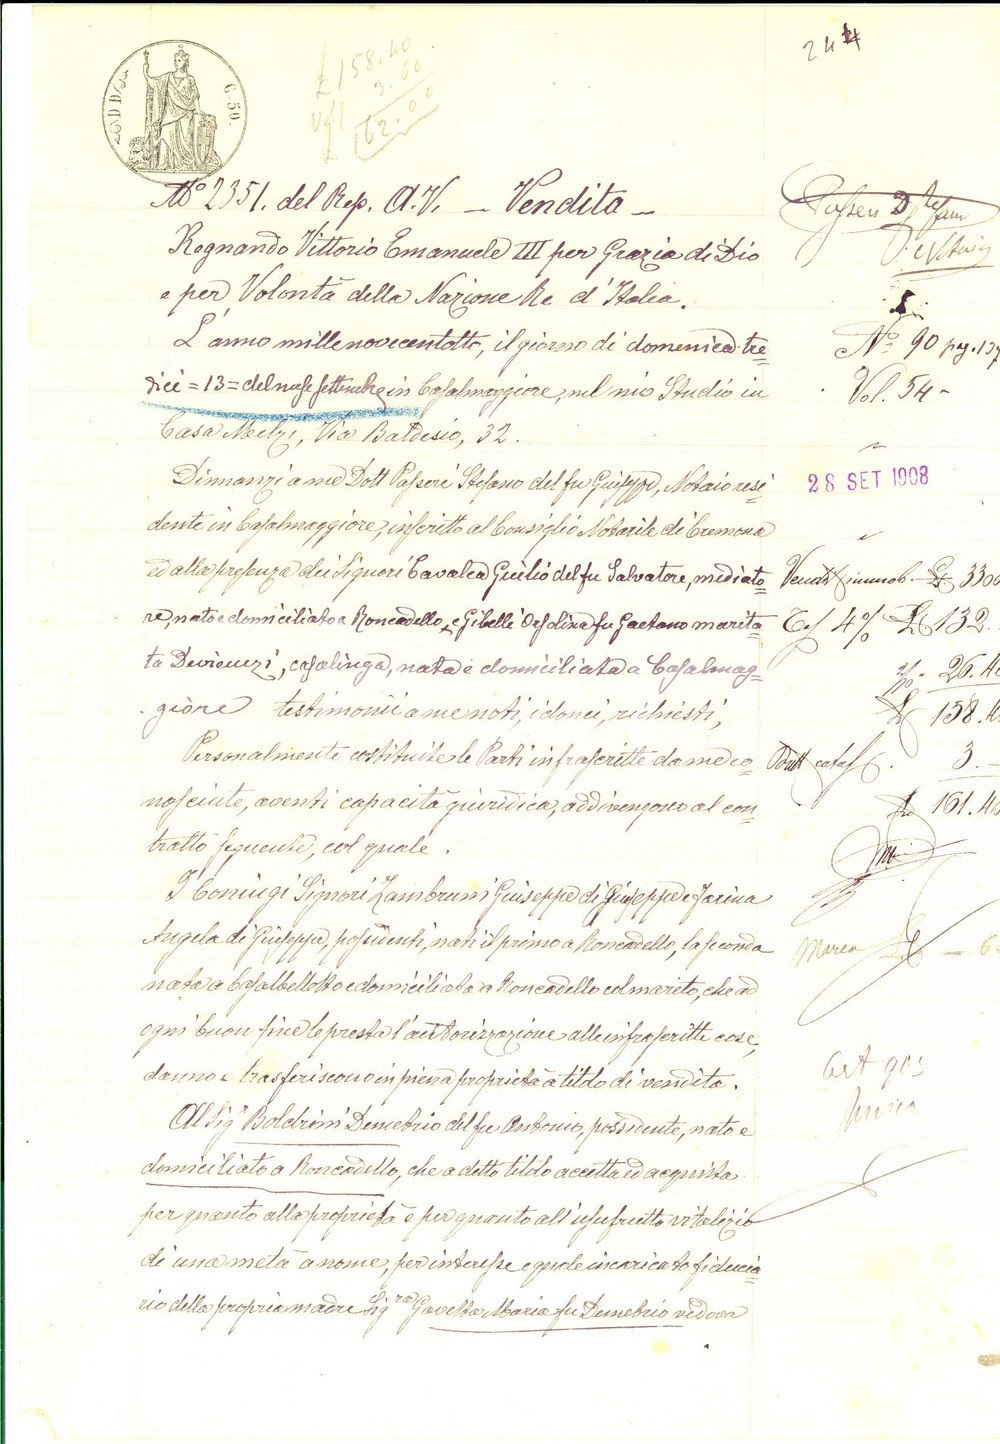 C. 50.
244
£ 158.40
3.60
162.00
Nº 2351. del Rep. A.V. — Vendita —
Regnando Vittorio Emanuele III per Grazia di Dio
e per Volontà della Nazione Re d'Italia.
L'anno millenovecentotto, il giorno di domenica tre=
dici = 13 = del mese settembre in Casalmaggiore, nel mio Studio in
Casa Melzi, Via Baldesio, 32.
Dinnanzi a me Dott Passeri Stefano del fu Giuseppe, Notaio resi=
dente in Casalmaggiore, inscritto al Consiglio Notarile di Cremona
ed alla presenza dei Signori Cavalca Giulio del fu Salvatore, mediato=
re, nato e domiciliato a Roncadello, e Gibelli Orsolina fu Gaetano marita=
ta Devicenzi, casalinga, nata e domiciliata a Casalmag=
giore testimonii a me noti, idonei, richiesti,
Personalmente costituite le Parti infrascritte da me co=
nosciute, aventi capacità giuridica, addivengono al con=
tratto seguente, col quale.
I Coniugi Signori Zambruni Giuseppe di Giuseppe e Farina
Angela di Giuseppe, possidenti, nati il primo a Roncadello, la seconda
nata a Casalbellotto e domiciliata a Roncadello col marito, che ad
ogni buon fine le presta l'autorizzazione alle infrascritte cose,
danno e trasferiscono in piena proprietà a titolo di vendita.
Al Sigr Boldrini Demetrio del fu Antonio, possidente, nato e
domiciliato a Roncadello, che a detto titolo accetta ed acquista
per quanto alla proprietà e per quanto all'usufrutto vitalizio
di una metà a nome, per interesse e quale incaricato fiducia=
rio della propria madre Sigra Gavetta Maria fu Demetrio vedova
Nº 90 pg. 137
Vol. 54 -
28 SET 1908
Vendit immob. £ 3300
Tas 4% £ 132.
26.40
£ 158.40
catas 3. —
£ 161.40
Marca
Art 903